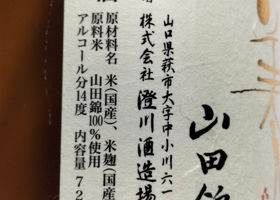 山田錦
山口県萩市大字中小川六一
株式会社 澄川酒造場
原材料名 米(国産)、米麹(国産
原料米 山田錦100%使用
アルコール分14度 内容量72